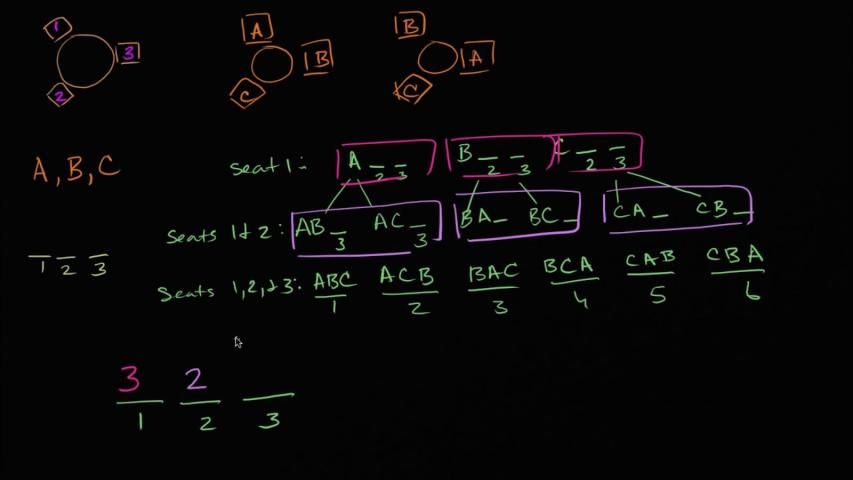 1
A
B
3
B
A
2
C
C
A, B, C
seat 1: A _ _ B _ _ C _ _
2 3 2 3 2 3
seats 1 & 2: AB _ AC _ BA _ BC _ CA _ CB _
3 3
1 2 3
seats 1, 2, & 3: ABC ACB BAC BCA CAB CBA
1 2 3 4 5 6
3 2
1 2 3